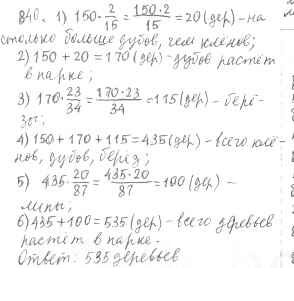 840. 1) 150·2/15 = 150·2/15 = 20 (дер) - на
столько больше дубов, чем клёнов;
2) 150 + 20 = 170 (дер) - дубов растёт
в парке;
3) 170·23/34 = 170·23/34 = 115 (дер) - берё-
зы;
4) 150 + 170 + 115 = 435 (дер) - всего клё-
нов, дубов, берёз;
5) 435·20/87 = 435·20/87 = 100 (дер) -
липы;
6) 435 + 100 = 535 (дер) - всего деревьев
растёт в парке.
Ответ: 535 деревьев